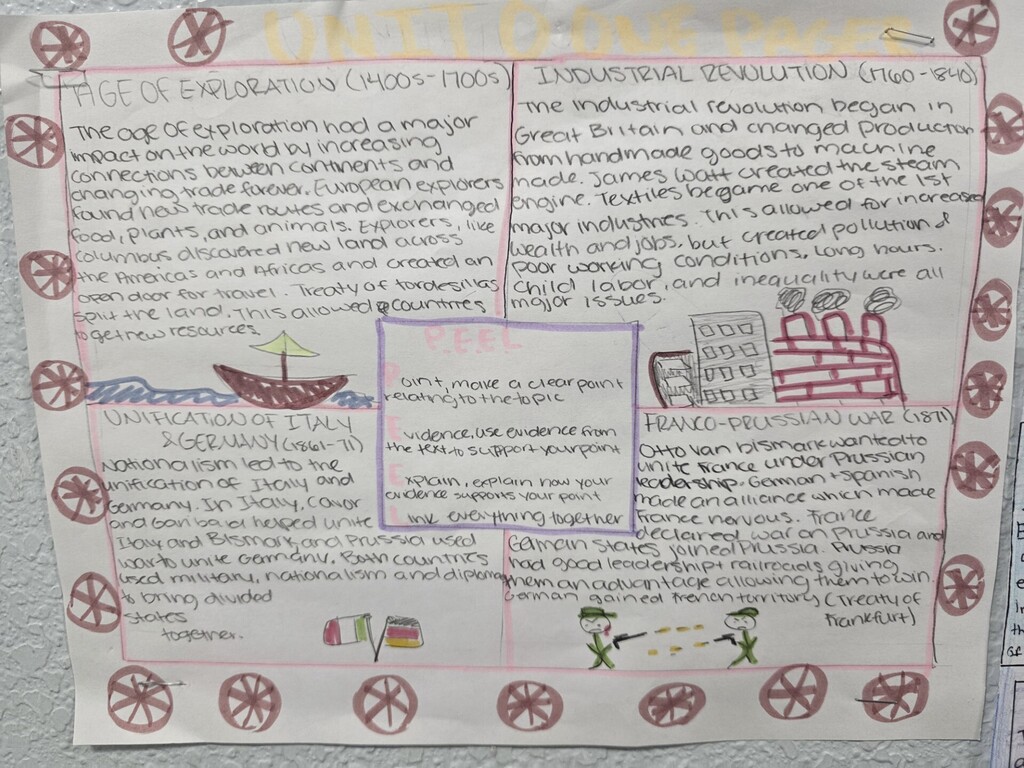 UNIT 0 ONE PAGER
AGE OF EXPLORATION (1400s-1700s)
The age of exploration had a major
impact on the world by increasing
connections between continents and
changing trade forever. European explorers
found new trade routes and exchanged
food, plants, and animals. Explorers, like
columbus discovered new land across
the Americas and Africas and created an
open door for travel. Treaty of tordesillas
split the land. This allowed countries
to get new resources.
INDUSTRIAL REVOLUTION (1760-1840)
The industrial revolution began in
Great Britain and changed production
from handmade goods to machine
made. James Watt created the steam
engine. Textiles became one of the 1st
major industries. This allowed for increased
wealth and jobs, but created pollution &
poor working conditions. Long hours.
Child labor, and inequality were all
major issues.
P.E.E.L
Point, make a clear point
relating to the topic
Evidence, use evidence from
the text to support your point
Explain, explain how your
evidence supports your point
Link everything together
UNIFICATION OF ITALY
& GERMANY (1861-71)
Nationalism led to the
unification of Italy and
Germany. In Italy, Cavor
and Garibaldi helped unite
Italy and Bismark and Prussia used
war to unite Germany. Both countries
used military, nationalism and diplomacy
to bring divided
states
together.
FRANCO-PRUSSIAN WAR (1871)
Otto van bismark wanted to
unite france under Prussian
leadership. German + spanish
made an alliance which made
France nervous. France
declared war on Prussia and
German states joined Prussia. Prussia
had good leadership + railroads giving
them an advantage allowing them to win.
German gained french territory (Treaty of
Frankfurt)